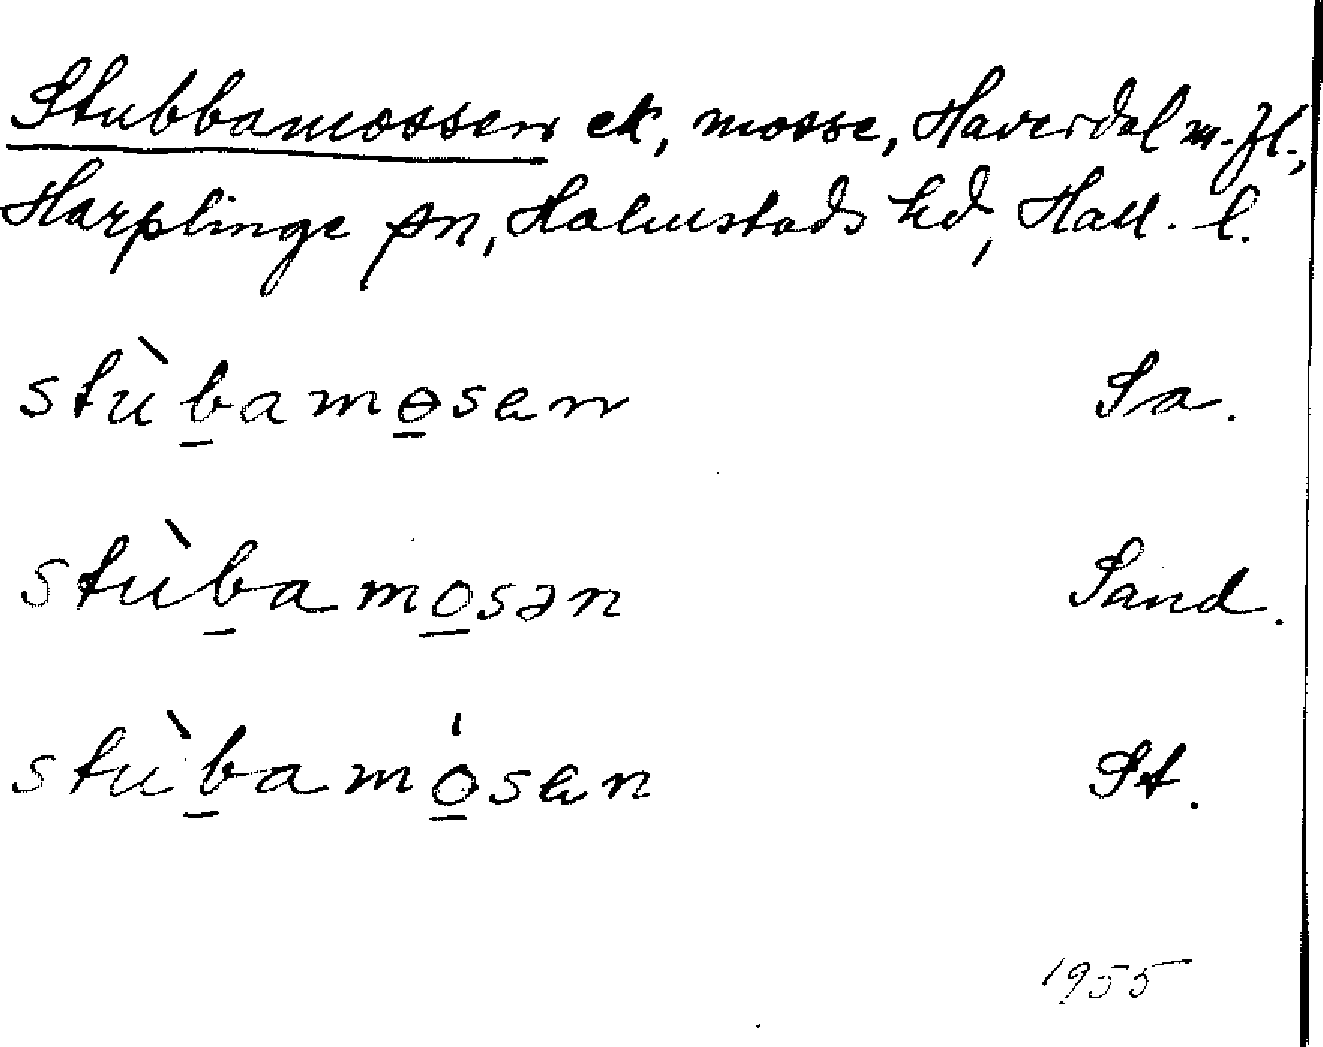 Stubbamossen ek, mosse, Haverdal m. fl.,
Harplinge sn, Halmstads hd, Hall. l.
stùbamosen Sa.
stùbamosən Sand.
stùbamósen St.
1955